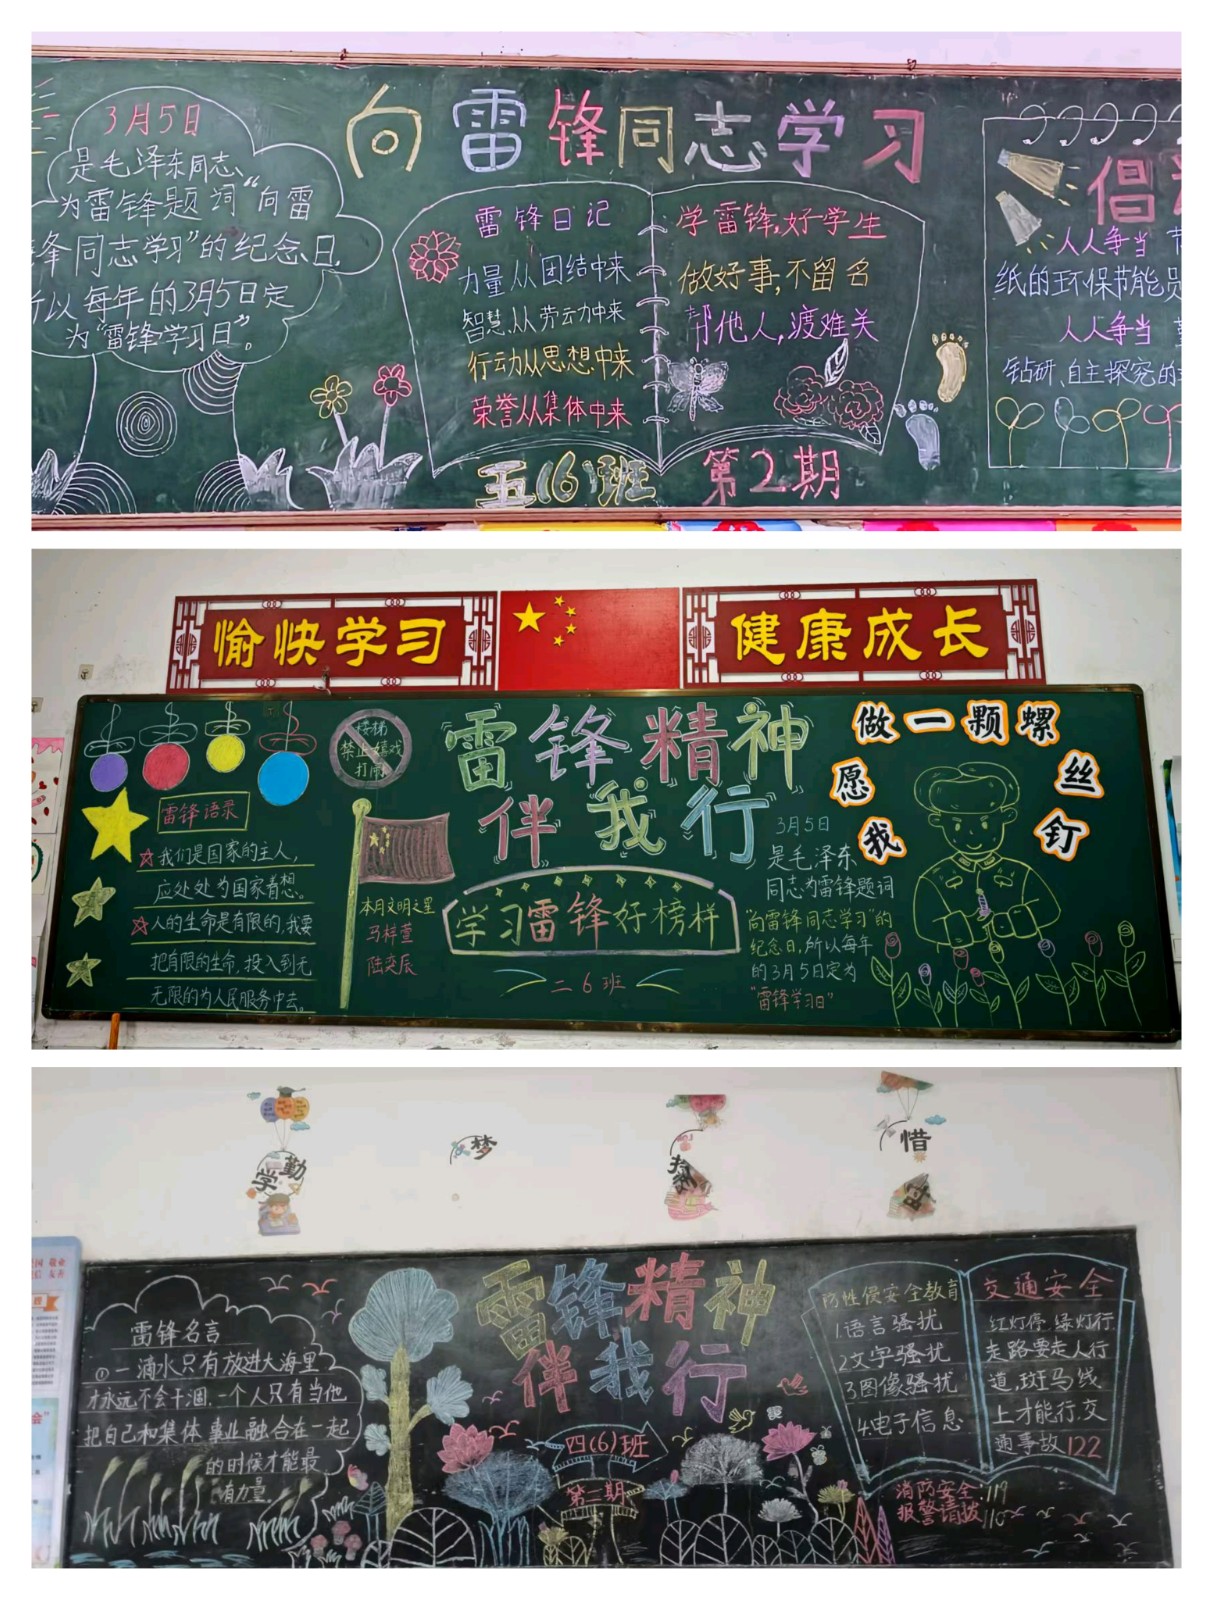 3月5日
是毛泽东同志
为雷锋题词“向雷
锋同志学习”的纪念日
所以每年的3月5日定
为“雷锋学习日”。
向雷锋同志学习
雷锋日记
力量从团结中来
智慧从劳动中来
行动从思想中来
荣誉从集体中来
学雷锋,好学生
做好事,不留名
帮他人,渡难关
五(6)班 第2期
倡
人人争当
纸的环保节能员
人人争当
钻研、自主探究的
愉快学习
健康成长
楼梯
禁止嬉戏
打闹
雷锋语录
我们是国家的主人,
应处处为国家着想。
人的生命是有限的,我要
把有限的生命,投入到无
无限的为人民服务中去。
本月文明之星
马梓萱
陆奕辰
雷锋精神
伴我行
学习雷锋好榜样
二6班
3月5日
是毛泽东
同志为雷锋题词
“向雷锋同志学习”的
纪念日,所以每年
的3月5日定为
“雷锋学习日”
愿我做一颗螺丝钉
勤学
梦
惜
雷锋名言
①一滴水只有放进大海里
才永远不会干涸,一个人只有当他
把自己和集体事业融合在一起
的时候才能最
有力量。
雷锋精神
伴我行
四(6)班
第二期
防性侵安全教育
1.语言骚扰
2文字骚扰
3图像骚扰
4.电子信息
交通安全
红灯停,绿灯行,
走路要走人行
道,斑马线
上才能行,交
通事故122
消防安全:119
报警请拨:110